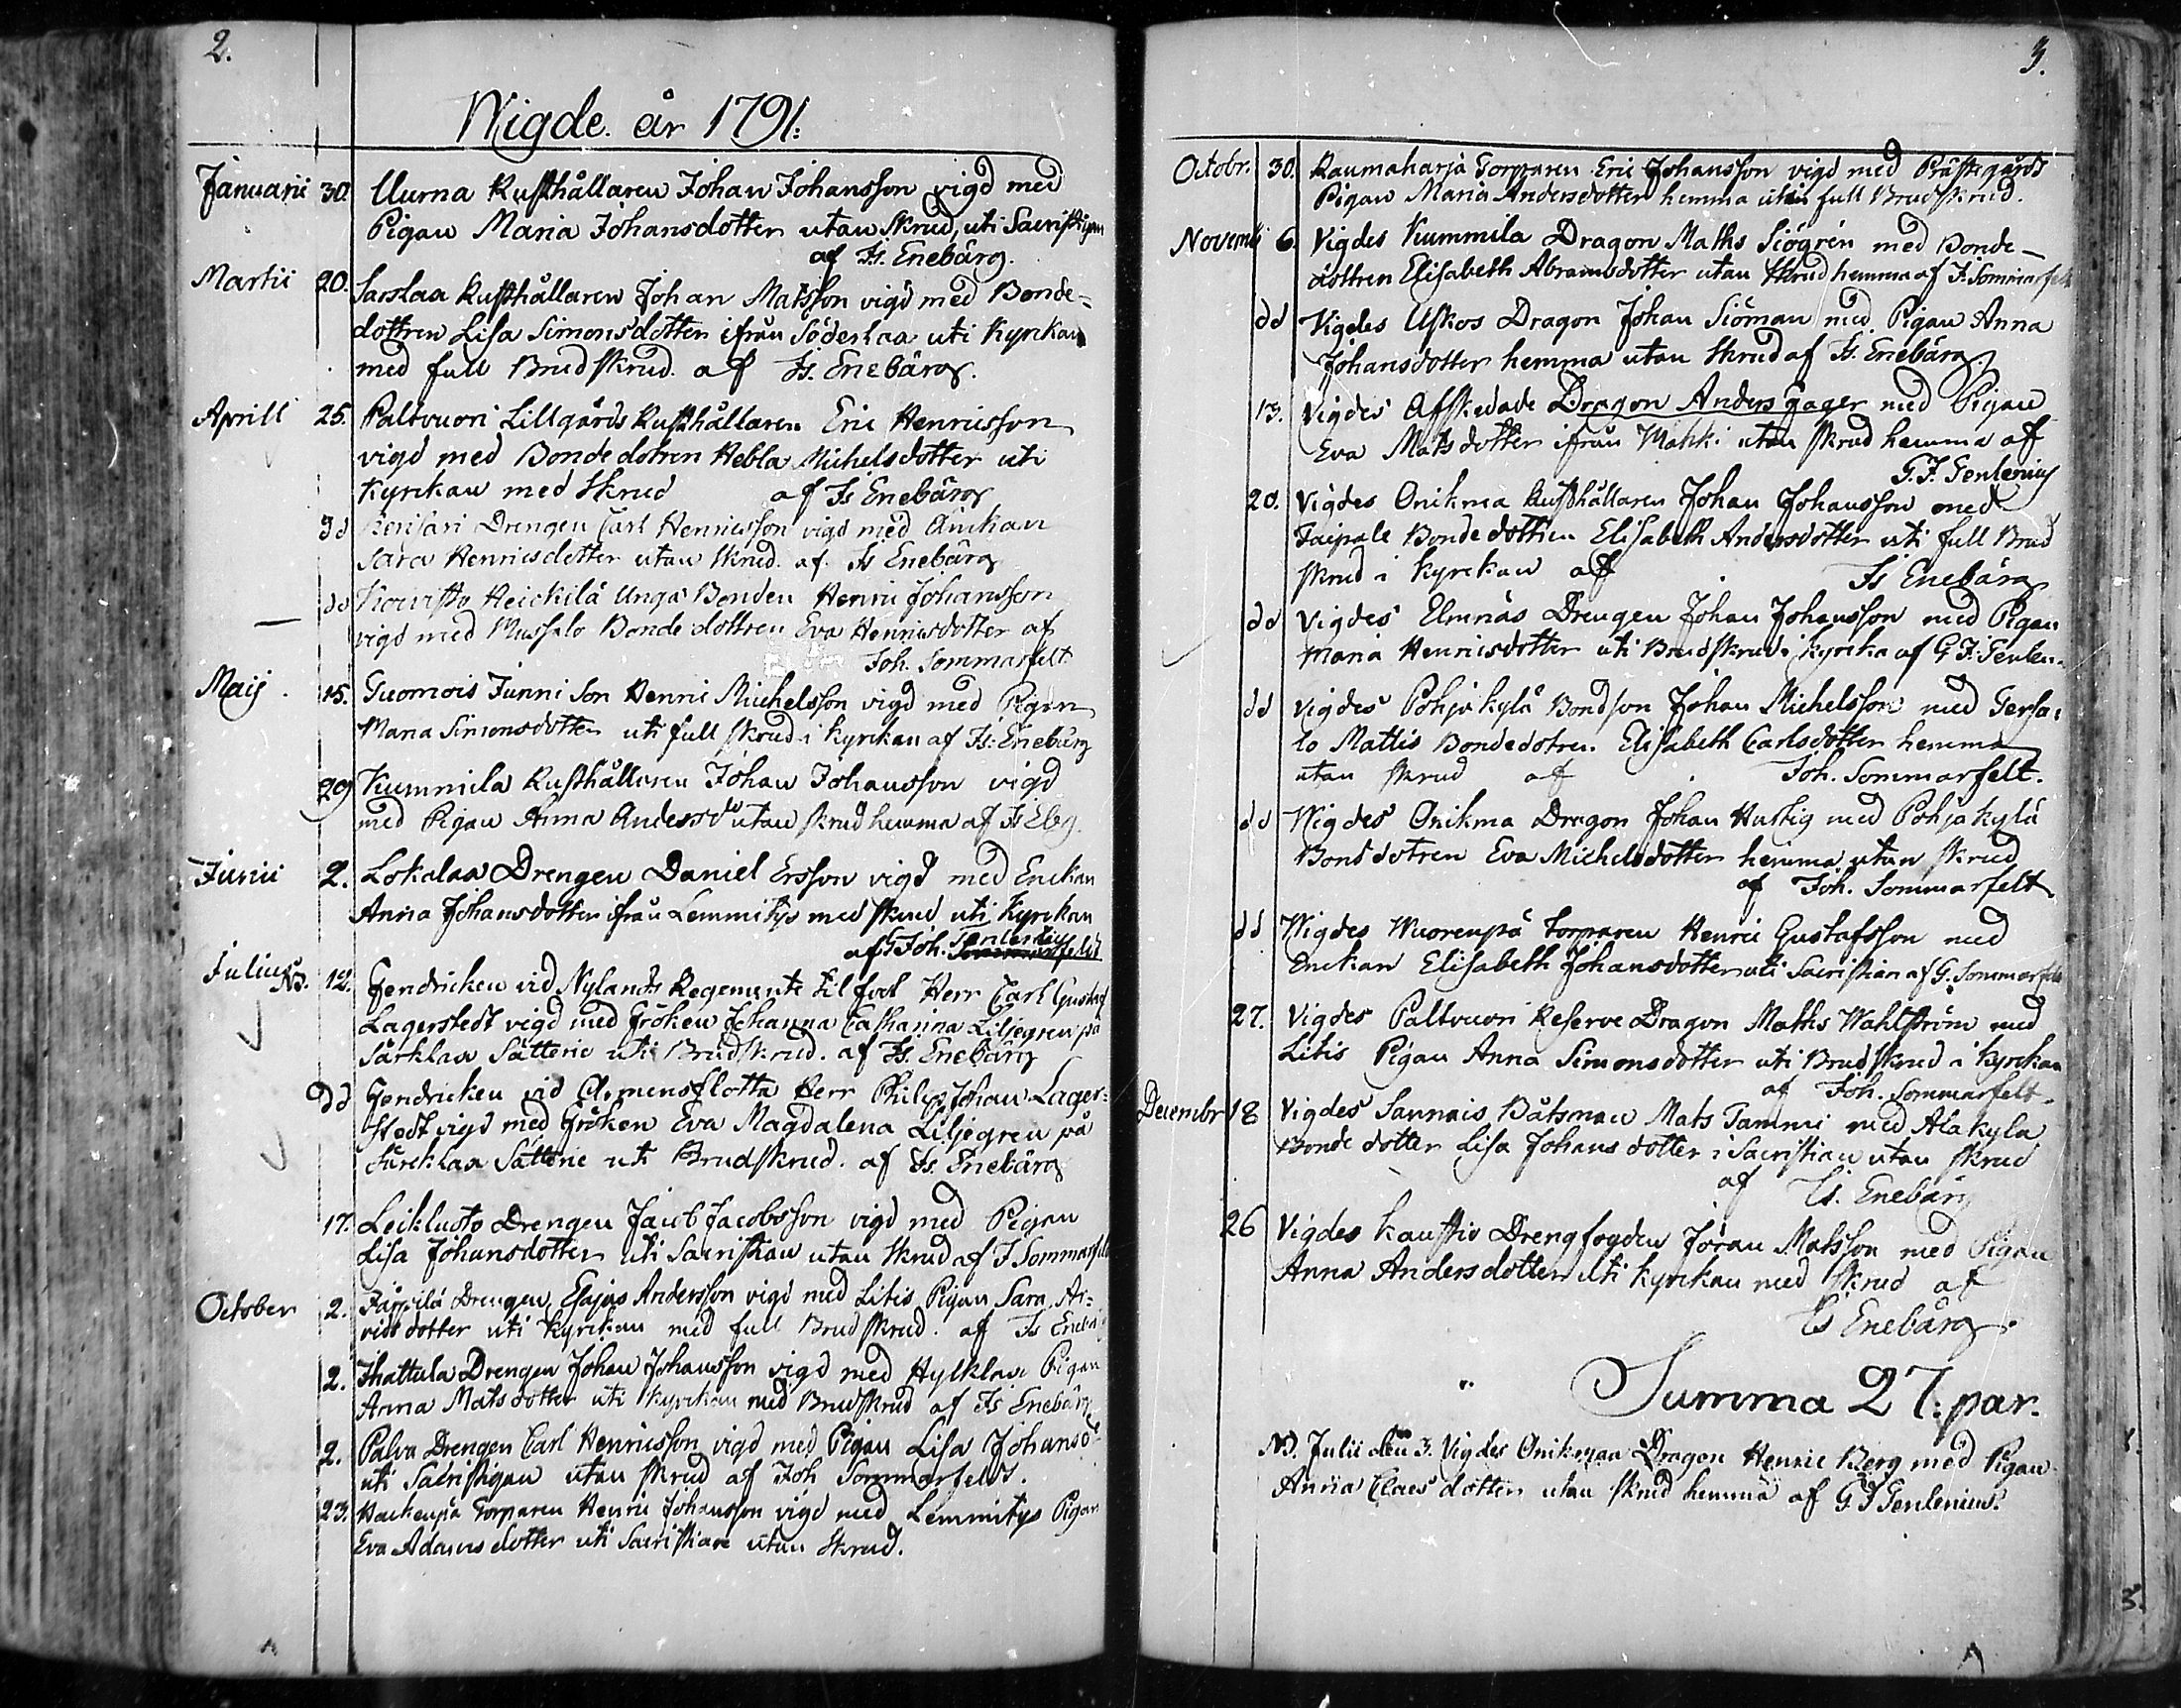 2.
Wigde år 1791:
Januarii 30. Uurna Rusthållaren Johan Johansson vigd med
Pigan Maria Johansdotter utan Skrud, uti Sacristigan
af Is. Enebärg.
Martii 20. Sarslaa Rusthållaren Johan Matsson vigd med Bonde-
dottren Lisa Simonsdotter ifrån Söderlaa uti Kyrkan
med full Brudskrud. af Is. Enebärg.
Aprill 25. Paltvuori Lillgårds Rusthållaren Eric Henricsson
vigd med Bonde dotren Hebla Michelsdotter uti
Kyrckan med Skrud af Is Enebärg
dd Drengen Carl Henricsson vigd med Änckan
Sara Henricsdotter utan Skrud. af Is Enebärg
dd Koivisto Heickilä Unga Bonden Henric Johansson
vigd med Mussalo Bonde dottren Eva Henricsdotter af
Joh. Sommarfelt
Maij 15. Tuomois Junni Son Henric Michelsson vigd med Pigan
Maria Simonsdotter uti full skrud i kyrckan af Is: Enebärg
29 Kummila Rusthållaren Johan Johansson vigd
med Pigan Anna Andersd:r utan skrud hemma af Is Ebg.
Junii 2. Lokalaa Drengen Daniel Ersson vigd med Enckan
Anna Johansdotter ifrån Lemmitys med skrud uti Kyrckan
af G Joh. Tenlenius Sommarfeldt
Julius NB. 12. Fendricken vid Nylands Regemente til fot Herr Carl Gustaf
Lagerstedt vigd med Fröken Johanna Catharina Liljegren på
Särklax Sätterie uti Brudskrud. af Is. Enebärg
dd Fendricken vid Armens flotta Herr Philip Johan Lager-
stedt vigd med Fröken Eva Magdalena Liljegren på
Särcklax Sätterie uti Brudskrud. af Is. Enebärg
17. Leikluoto Drengen Jacob Jacobsson vigd med Pigan
Lisa Johansdotter uti Sacristian utan Skrud af J Sommarfelt
October 2. Järppilä Drengen Esajas Andersson vigd med Litis Pigan Sara Ar-
vids dotter uti Kyrckan med full Brudskrud. af Is Enebärg
2. Ihattula Drengen Johan Johansson vigd med Hylklax Pigan
Anna Matsdotter uti Kyrckan med Brudskrud af Is Enebärg
2. Palva Drengen Carl Henricsson vigd med Pigan Lisa Johansd:r
uti Sacristigan utan skrud af Joh Sommarfeldt.
23. Torparen Henric Johansson vigd med Lemmitys Pigan
Eva Adams dotter uti Sacristian utan Skrud.
3.
Octobr. 30. Raumaharja Torparen Eric Johansson vigd med Prästgårds
Pigan Maria Andersdotter hemma utan full Brudskrud.
Novemb 6. Vigdes Kummila Dragon Maths Siögrén med Bonde-
dottren Elisabeth Abramsdotter utan Skrud hemma af J. Sommarfelt
dd Vigdes Uskos Dragon Johan Siöman med Pigan Anna
Johansdotter hemma utan Skrud af Is. Enebärg.
13. Vigdes Afskedade Dragon Anders Jager med Pigan
Eva Matsdotter ifrån Mahki utan skrud hemma af
G. J. Tenlenius
20. Vigdes Onikma Rusthållaren Johan Johansson med
Taipale Bondedottren Elisabeth Andersdotter uti full Brud
skrud i kyrckan af Is Enebärg
dd Vigdes Elmnäs Drengen Johan Johansson med Pigan
Maria Henricsdotter uti Brudskrud i kyrcka af G J: Tenlen.
dd Vigdes Pohjakylä Bondson Johan Michelsson med Tersa-
lo Mattis Bondedotren Elisabeth Carlsdotter hemma
utan skrud af Joh. Sommarfelt.
dd Wigdes Onikma Dragon Johan Hurtig med Pohjakylä
Bonddotren Eva Michelsdotter hemma utan skrud
af Joh. Sommarfelt
dd Wigdes Wuorenpä torparen Henric Gustafsson med
Enckan Elisabeth Johansdotter uti Sacristian af G. Sommarfelt
27. Vigdes Paltvuori Reserve Dragon Maths Wahlström med
Litis Pigan Anna Simonsdotter uti Brudskrud i kyrckan
af Joh. Sommarfelt.
Decembr 18 Vigdes Sannais Båtsman Mats Tammi med Alakyla
Bonde dotter Lisa Johans dotter i Sacristian utan skrud
af Is. Enebärg
26 Vigdes Kaustio Drengfogden Jöran Matsson med Pigan
Anna Andersdotter uti kyrckan med skrud af
Is Enebärg.
Summa 27: par.
NB. Julii den 3. Vigdes Onikmaa Dragon Henric Berg med Pigan
Anna Claes dotter utan skrud hemma af G. J Tenlenius.